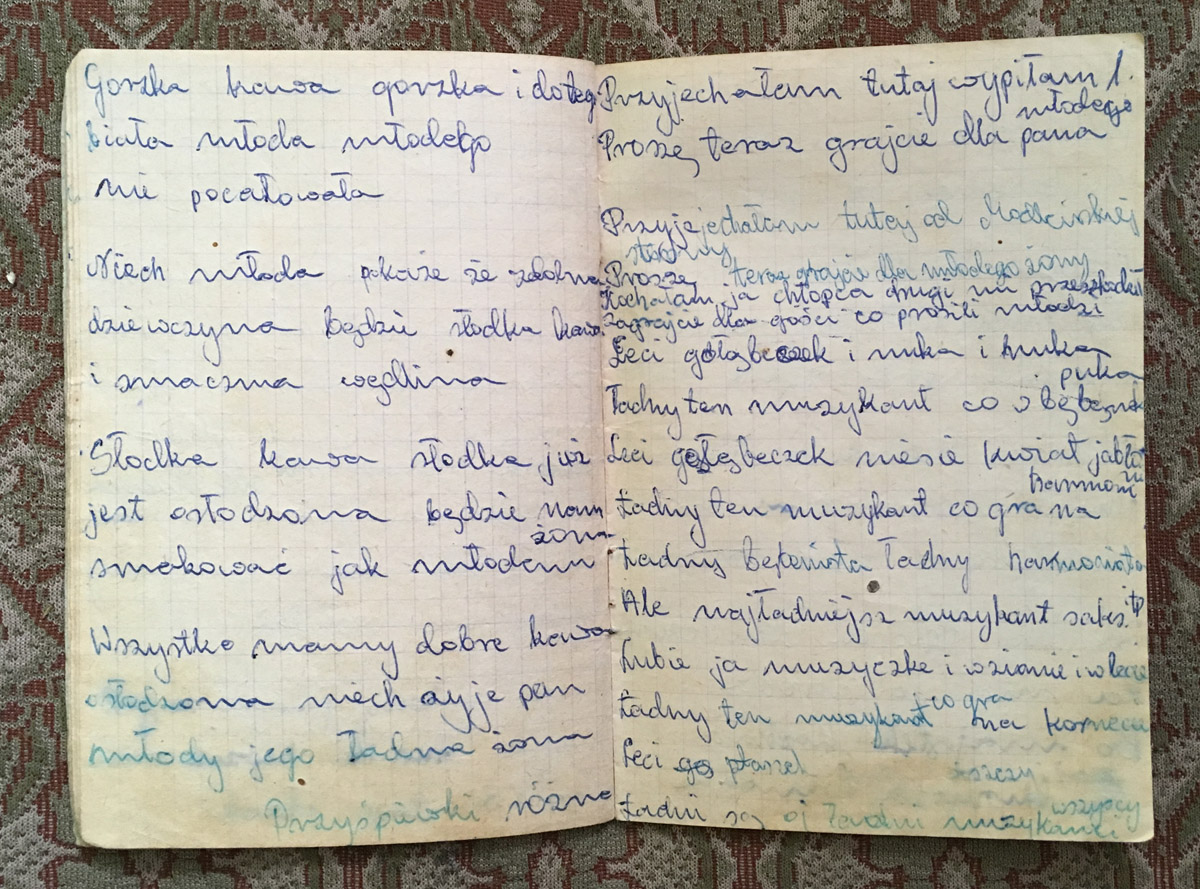 Gorzka kawa gorzka i doteg
biała młoda młodego
nie pocałowała
Niech młoda pokaże że zdolna
dziewczyna będzie słodka kawa
i smaczna wędlina
Słodka kawa słodka już
jest osłodzona będzie nam
smakować jak młodemu żona
Wszystko mamy dobre kawa
osłodzona niech żyje pan
młody jego ładna żona
Przyśpiewki różne
Przyjechałam tutaj wypiłam 1.
Proszę teraz grajcie dla pana młodego
Przyjejechałam tutej od
strony
Proszę teraz grajcie dla młodego żony
Kochałam ja chłopca drugi mi przeszkodził
Zagrajcie dla gości co prosili młodzi
Leci gołąbeczek i nuka i huka
Ładny ten muzykant co w bęben puka
Leci gołąbeczek niesie kwiat jabłoni
Ładny ten muzykant co gra na harmonii
Ładny bębenista ładny harmonista
Ale najładniejsz muzykant saks. itp
Lubie ja muzyczke i w zimie i w lecie
Ładny ten muzykant co gra na kornecie
Leci ptaszek
Ładni są oj ładni muzykanci wszyscy